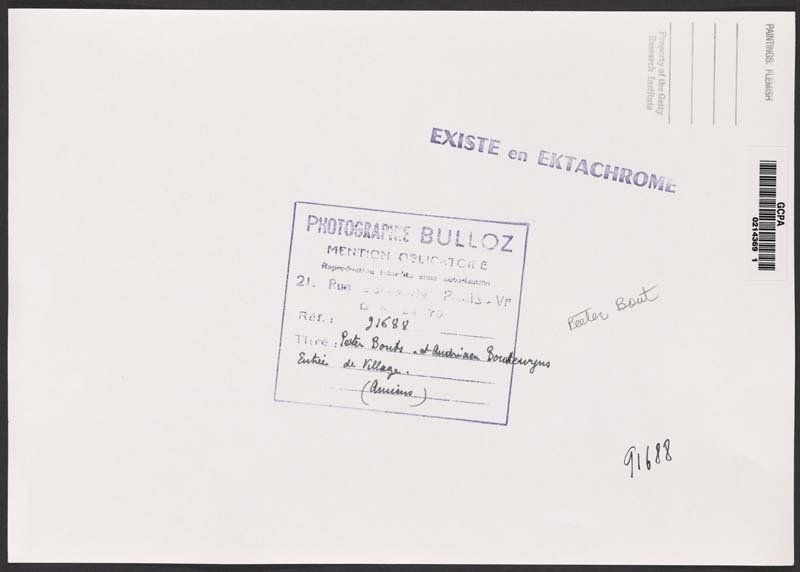 PAINTINGS: FLEMISH
Property of the Getty
Research Institute
EXISTE en EKTACHROME
GCPA
0214369 1
PHOTOGRAPHIE BULLOZ
MENTION OBLIGATOIRE
Reproduction interdite sans autorisation
21. Rue Paris - VIe
Réf.: 91688
Titre: Peter Bouts et Andrien Boudewyns
Entrée de Village.
(Amiens)
Peeter Bout
91688